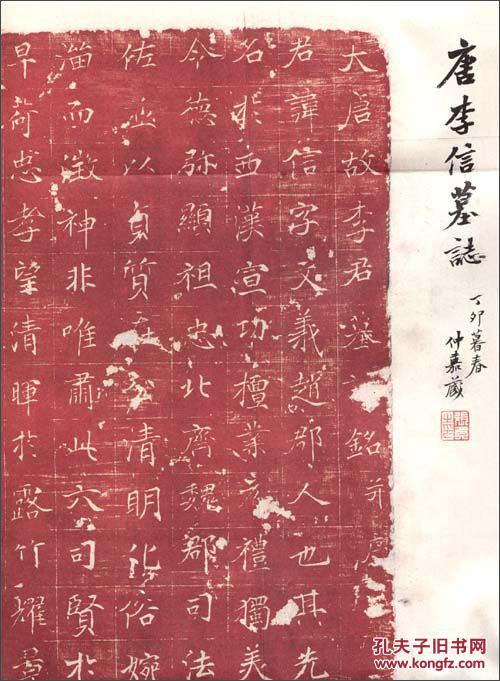 唐李信墓誌
丁卯暮春
仲嘉藏
大唐故李君墓銘并序
君諱信字文義趙郡人也其先
名於西漢宣功檀業玄禮獨美
令德弥顯祖忠北齊魏郡司法
佐並以貞質清明化俗婉
淄而澂神非唯肅此六司賢於
早荷忠孝望清暉於露竹耀
孔夫子旧书网
www.kongfz.com